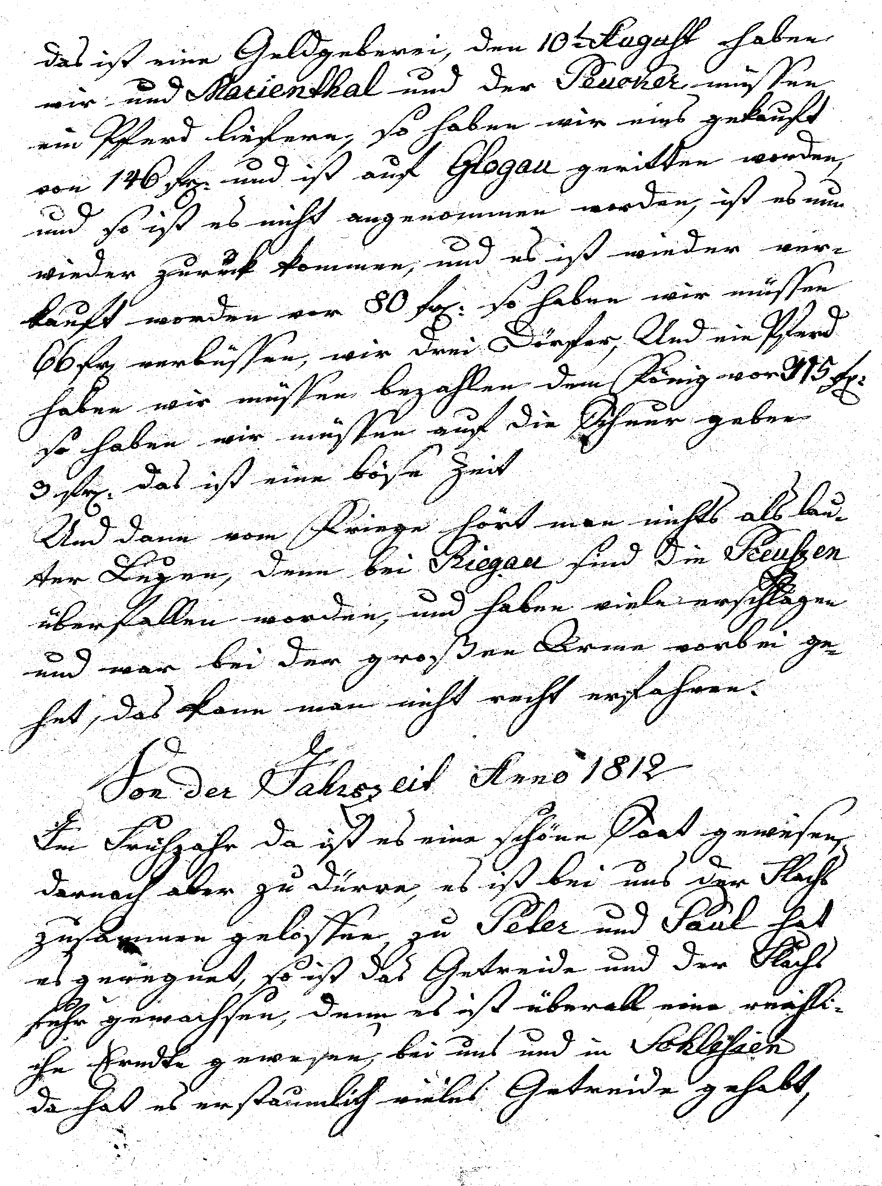 das ist eine Geldgeberei, den 10t August haben
wir und Marienthal und der Peucker müssen
ein Pferd liefern, so haben wir eins gekauft
von 146 fr: und ist auf Glogau geritten worden,
und so ist es nicht angenommen worden, ist es nun
wieder zurük kommen, und es ist wieder ver-
kauft worden vor 80 fr: so haben wir müssen
66 fr verbüssen, wir drei Dörfer, Und ein Pferd
haben wir müssen bezahlen dem König vor 115 fr:
so haben wir müssen auf die Schnur geben
3 fr: das ist eine böse Zeit
Und dann vom Kriege hört man nichts als lau-
ter Lügen, denn bei Riegau sind die Preußen
überfallen worden, und haben viele erschlagen
und war bei der großen Arme vorbei ge-
het, das kann man nicht recht erfahren.
Von der Jahrszeit Anno 1812
Im Frühjahr da ist es eine schöne Saat gewesen,
darnach aber zu dürre, es ist bei uns der Flachs
zusammen gelossen, zu Peter und Paul hat
es geregnet, so ist das Getreide und der Flachs
sehr gewachsen, denn es ist überall eine reichli-
che Erndte gewesen, bei uns und in Schlesien
da hat es erstaunlich vieles Getreide gehabt,